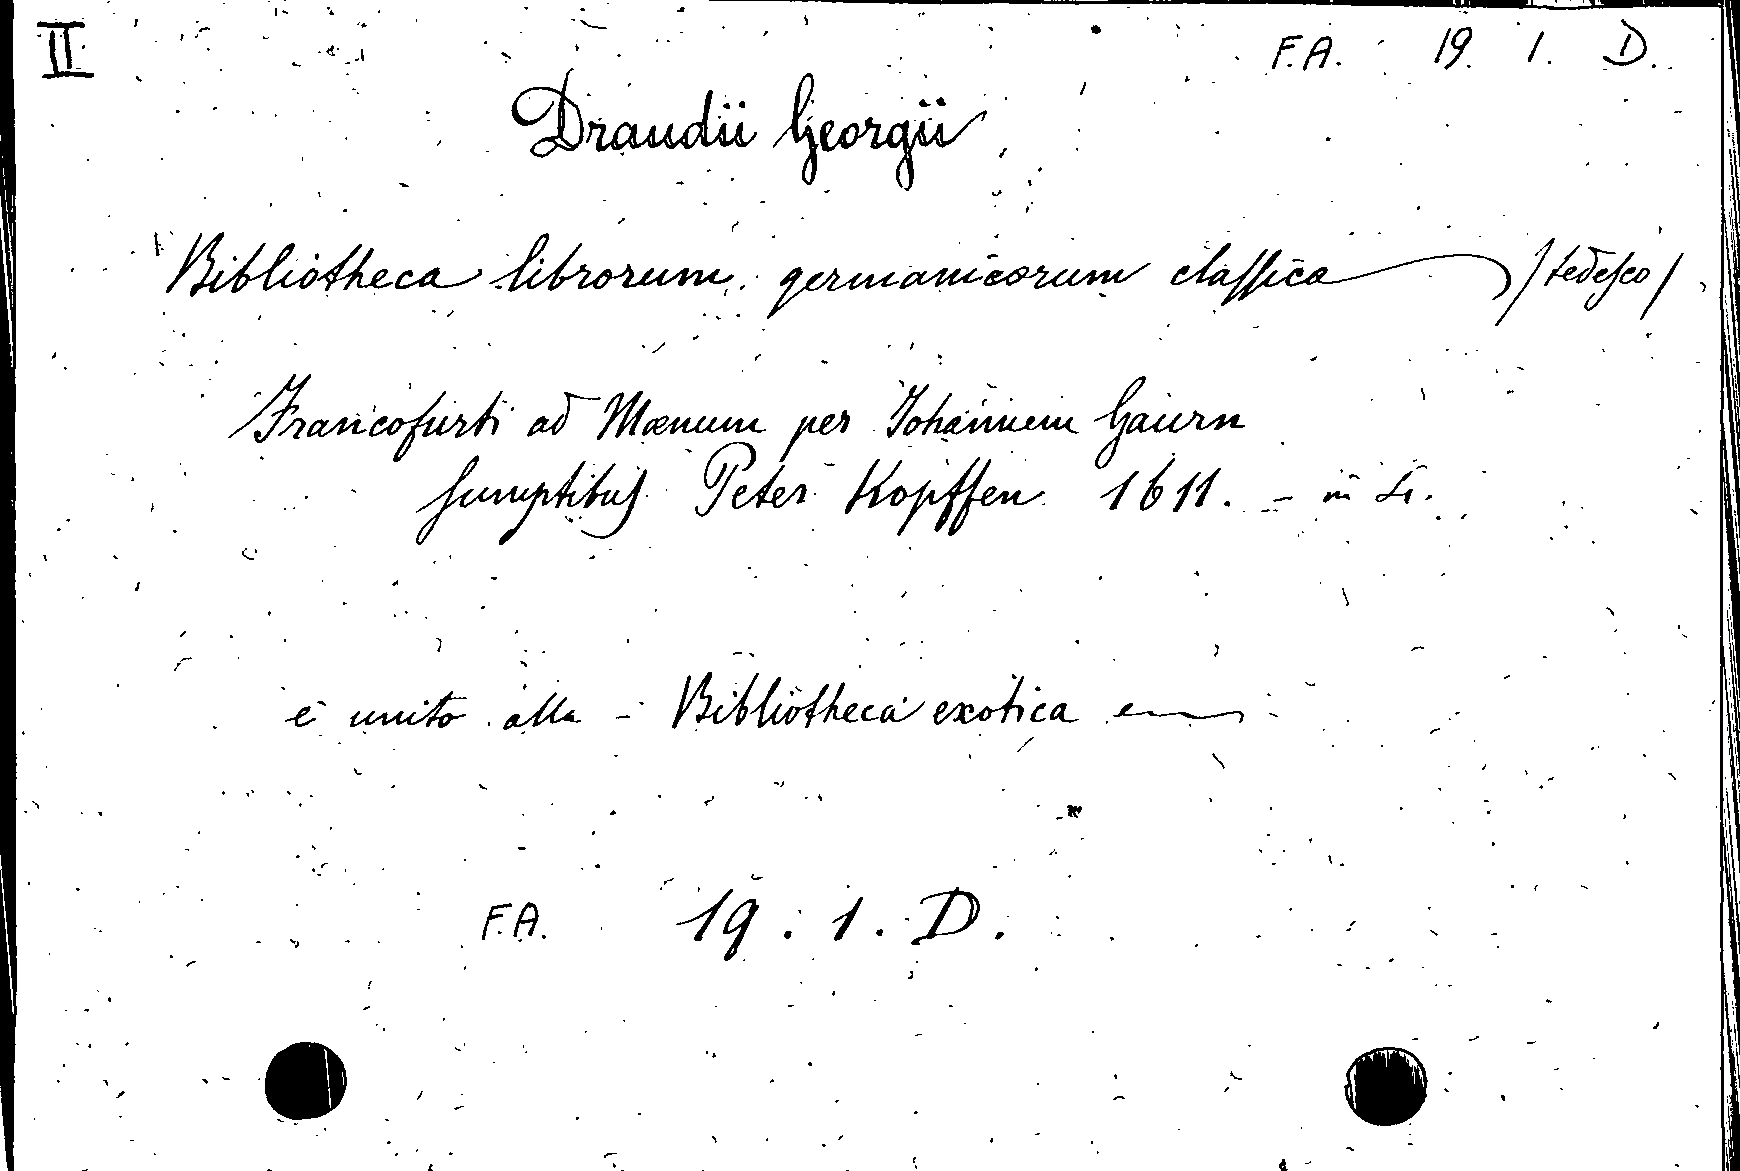 II
F.A. 19. 1. D.
Draudii Georgii
Bibliotheca librorum germanicorum classica /tedesco/
Francofurti ad Mænum per Johannem Gaurn
sumptibus Peter Kopffen 1611. - in 4.
è unito alla - Bibliotheca exotica
F.A. 19. 1. D.